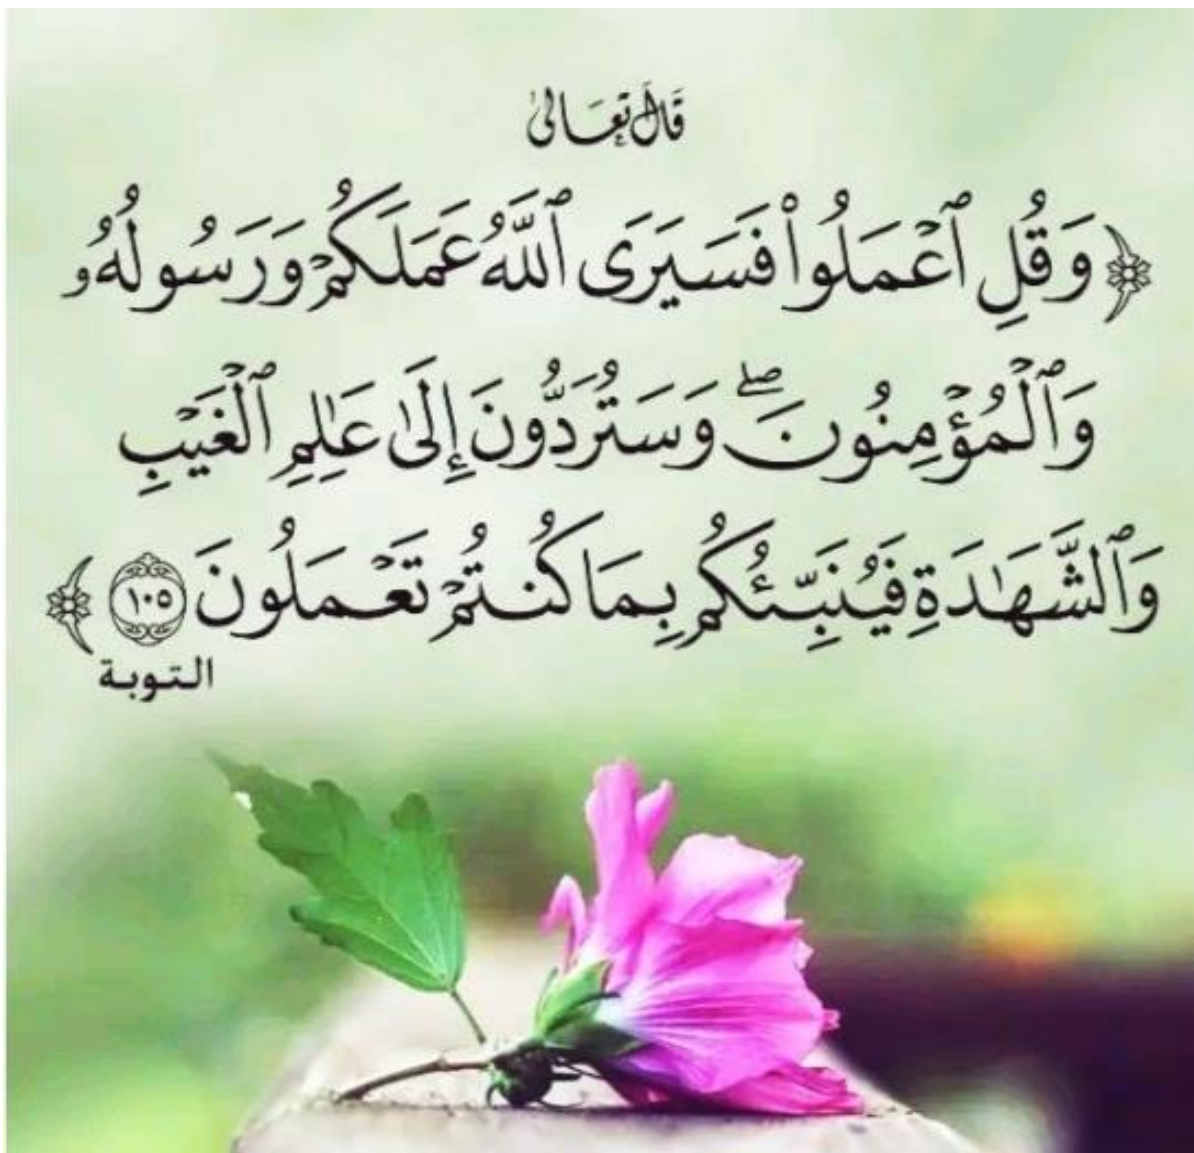 قَالَ تَعَالَىٰ
﴿وَقُلِ ٱعْمَلُوا۟ فَسَيَرَى ٱللَّهُ عَمَلَكُمْ وَرَسُولُهُۥ
وَٱلْمُؤْمِنُونَ ۖ وَسَتُرَدُّونَ إِلَىٰ عَٰلِمِ ٱلْغَيْبِ
وَٱلشَّهَٰدَةِ فَيُنَبِّئُكُم بِمَا كُنتُمْ تَعْمَلُونَ ١٠٥﴾
التوبة